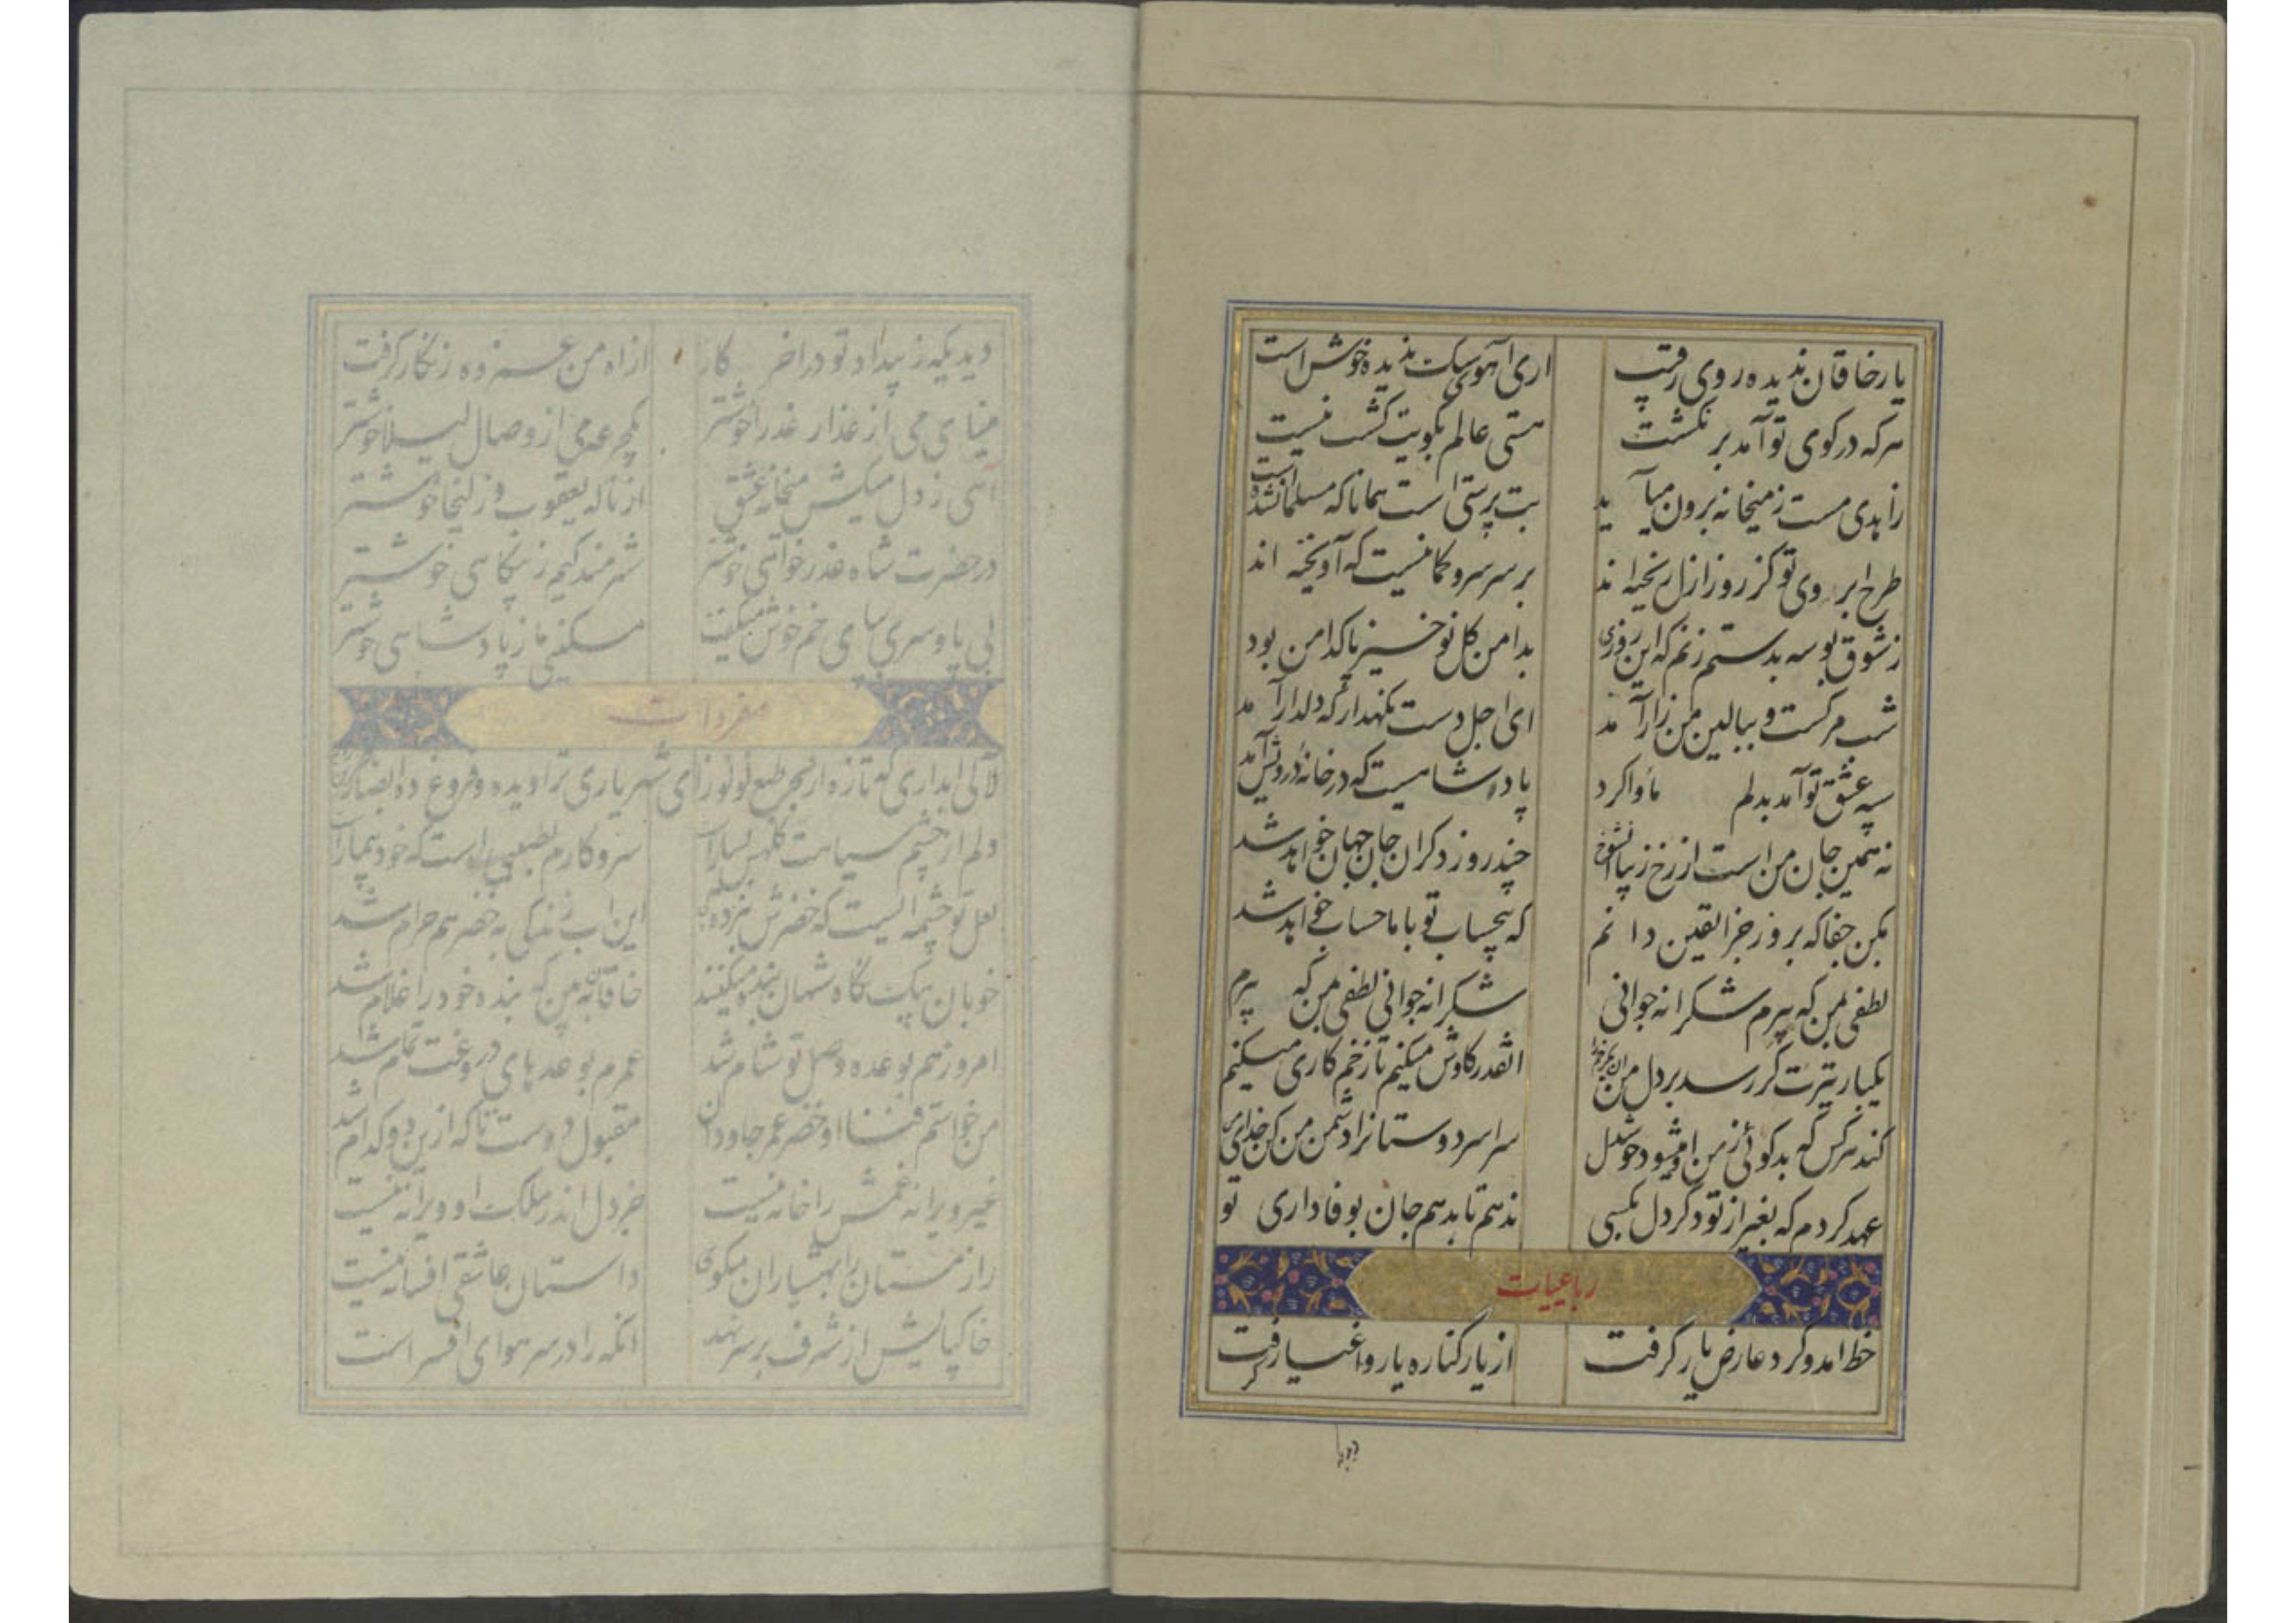 یار خاقان ندیده روی رقیب اری آهوی سک ندیده خوش است
هرکه در کوی تو آمد برنکشت هستی عالم بکویت کشت نیست
زاهدی مست زمیخانه برون میآید بت پرستی است همانا که مسلمان شده است
طرح ابروی تو کز روز ازل ریخته اند بر سر سرو کمانیست که آویخته اند
ز شوق بوسه بدستم زنم که این روزی بدامن کل نوخیز پاکدامن بود
شب مرکست و ببالین من زار آمد ای اجل دست نکهدار که دلدار آمد
سپه عشق تو آمد بدلم ماوا کرد پادشاهیست که در خانه درویش آمد
نه همین جان من است از رخ زیبا انشوخ چند روز دکر ان جان جهان خواهد شد
بکن جفا که بروز جزا یقین دانم که بیحساب تو با ما حساب خواهد شد
لطفی بمن که پیرم شکرانه جوانی شکرانه جوانی لطفی بمن که پیرم
یکبار تیرت کر رسد بر دل من انقدر کاوش میکنیم تا زخم کاری میکنیم
کند هرکس که بدکوئی ز من او میشود خوشدل سراسر دوستانرا دشمن من کن خدای من
عهد کردم که بغیر از تو دکر دل بکسی ندهم تا بدهم جان بوفاداری تو
رباعیات
خط امد و کرد عارض یار کرفت از یار کناره یار و اغیار کرفت
دیدیکه ز بیداد تو در اخر کار از اه من غمزده زنکار کرفت
مینای می از عذار عذرا خوشتر یکجرعه می از وصال لیلا خوشتر
آهی ز دل میکش میخانه عشق از ناله یعقوب و زلیخا خوشتر
در حضرت شاه عذرخواهی خوشتر شرمندکیم ز بیکناهی خوشتر
بی پا و سری بپای خم خوش میکفت مسکینی ما ز پادشاهی خوشتر
مفردات
لآلی ابداری که تازه از بحر طبع لولوزای شهریاری تراویده و فروغ ده ابصار
دلم از چشم سیاهت کلهی بسیار است سر و کارم بطبیبی است که خود بیمار است
لعل تو چشمه ایست که خضرش نبرده این اب زندکی به خضر هم حرام شد
خوبان بیک نکاه شهان بنده میکنند خاقان نه من که بنده خود را غلام شد
امروز هم بوعده وصل تو شام شد عمرم بوعدهای دروغت تمام شد
من خواستم فنا او خضر عمر جاودان مقبول دوست تا که ازین دو کدام شد
غیر ویرانه غمش را خانه نیست جز دل اندر ملکت او ویرانه نیست
راز مستان را بهشیاران مکوی داستان عاشقی افسانه نیست
خاکپایش از شرف بر سر نهد انکه را در سر هوای افسر است